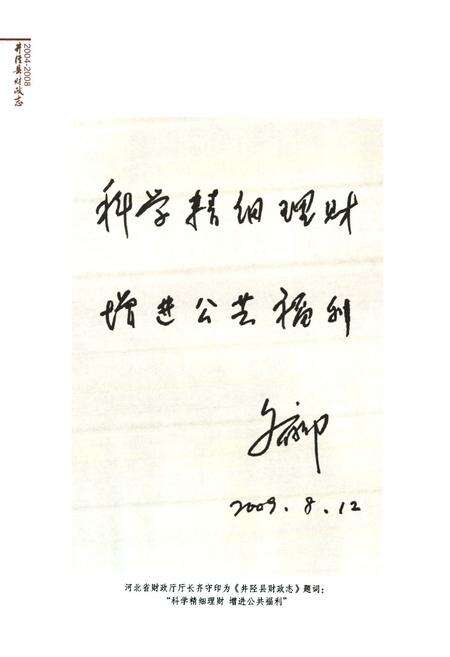 2004-2008
井陉县财政志
科学精细理财
增进公共福利
齐守印
2009.8.12
河北省财政厅厅长齐守印为《井陉县财政志》题词：
“科学精细理财 增进公共福利”